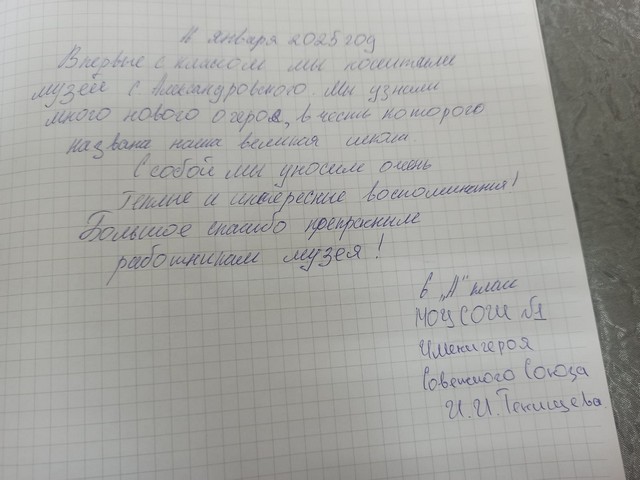 января 2025 год
Впервые с классом мы посетили
музей с Александровского. Мы узнали
много нового о герое, в честь которого
названа наша великая школа
С собой мы уносим очень
теплые и интересные воспоминания!
Большое спасибо прекрасным
работникам музея!
6 "А" класс
МОУ СОШ №1
Имени героя
Советского Союза
И.И. Тенищева.